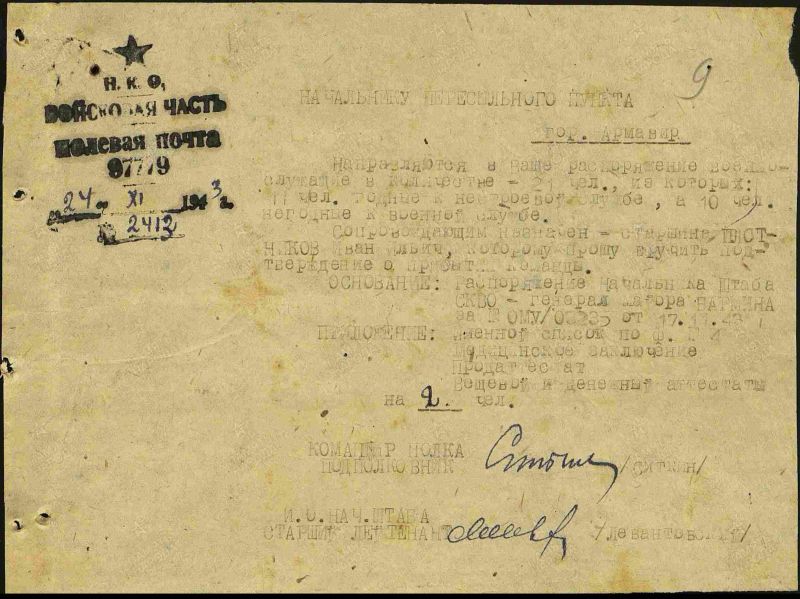 9
Н. К. О,
ВОЙСКОВАЯ ЧАСТЬ
полевая почта
97779
24 XI 1943 г.
№ 2412
НАЧАЛЬНИКУ ПЕРЕСЫЛЬНОГО ПУНКТА
гор. Армавир
Направляются в ваше распоряжение военно-
служащие в количестве - 21 чел., из которых:
11 чел. годные к нестроевой службе, а 10 чел.
негодные к военной службе.
Сопровождающим назначен - старшина ПЛОТ-
НИКОВ Иван Ильич, которому прошу вручить под-
тверждение о прибытии команды.
ОСНОВАНИЕ: Распоряжение Начальника Штаба
СКВО - генерал майора
за № ОМУ/ от 17.11.43
ПРИЛОЖЕНИЕ: Именной список по ф.
Медицинское заключение
Продаттестат
Вещевой и денежный аттестаты
на 2. чел.
КОМАНДИР ПОЛКА
ПОДПОЛКОВНИК /СЯТКИН/
И.О.НАЧ.ШТАБА
СТАРШИЙ ЛЕЙТЕНАНТ /Левантовский/